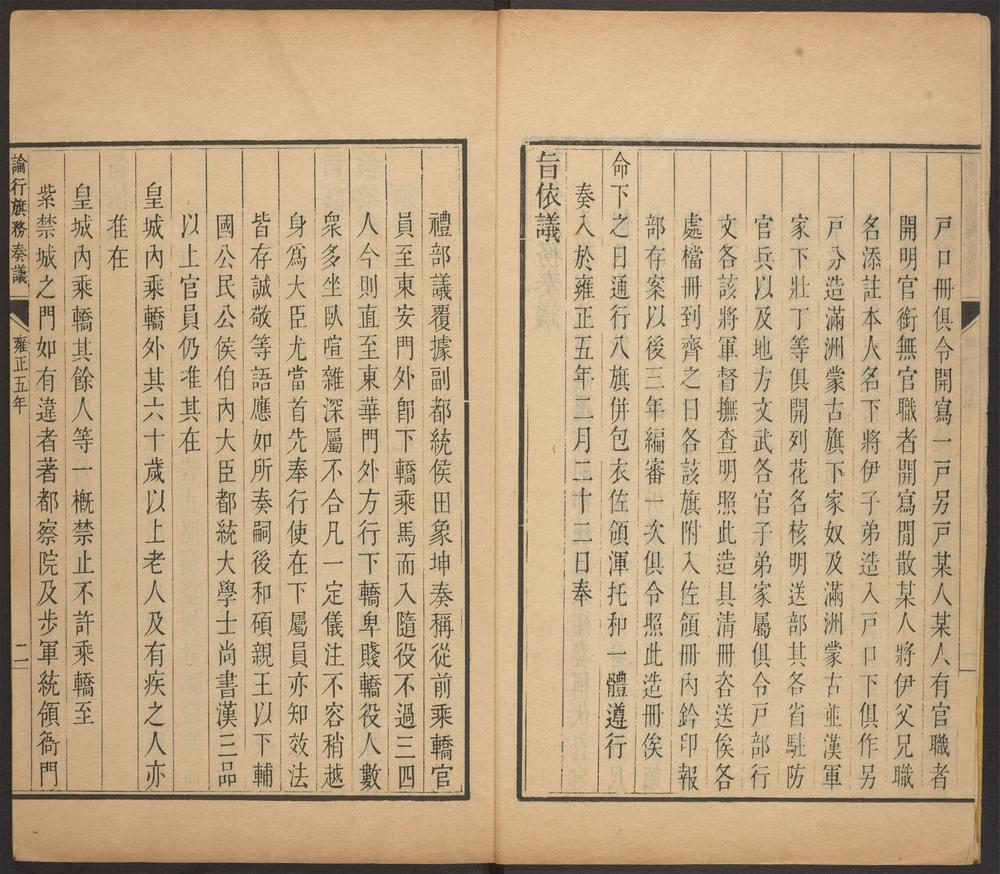 戸口冊俱令開寫一戸另戸某人某人有官職者
開明官銜無官職者開寫閒散某人將伊父兄職
名添註本人名下將伊子弟造入戸口下俱作另
戸分造滿洲蒙古旗下家奴及滿洲蒙古並漢軍
家下壯丁等俱開列花名核明送部其各省駐防
官兵以及地方文武各官子弟家屬俱令戸部行
文各該將軍督撫查明照此造具清冊咨送俟各
處檔冊到齊之日各該旗附入佐領冊內鈐印報
部存案以後三年編審一次俱令照此造冊俟
命下之日通行八旗併包衣佐領渾托和一體遵行
奏入於雍正五年二月二十二日奉
旨依議
禮部議覆據副都統侯田象坤奏稱從前乘轎官
員至東安門外卽下轎乘馬而入隨役不過三四
人今則直至東華門外方行下轎卑賤轎役人數
衆多坐臥喧雜深屬不合凡一定儀注不容稍越
身爲大臣尤當首先奉行使在下屬員亦知效法
皆存誠敬等語應如所奏嗣後和碩親王以下輔
國公民公侯伯內大臣都統大學士尚書漢三品
以上官員仍准其在
皇城內乘轎外其六十歲以上老人及有疾之人亦
准在
皇城內乘轎其餘人等一槪禁止不許乘轎至
紫禁城之門如有違者著都察院及步軍統領衙門
諭行旗務奏議
雍正五年
二